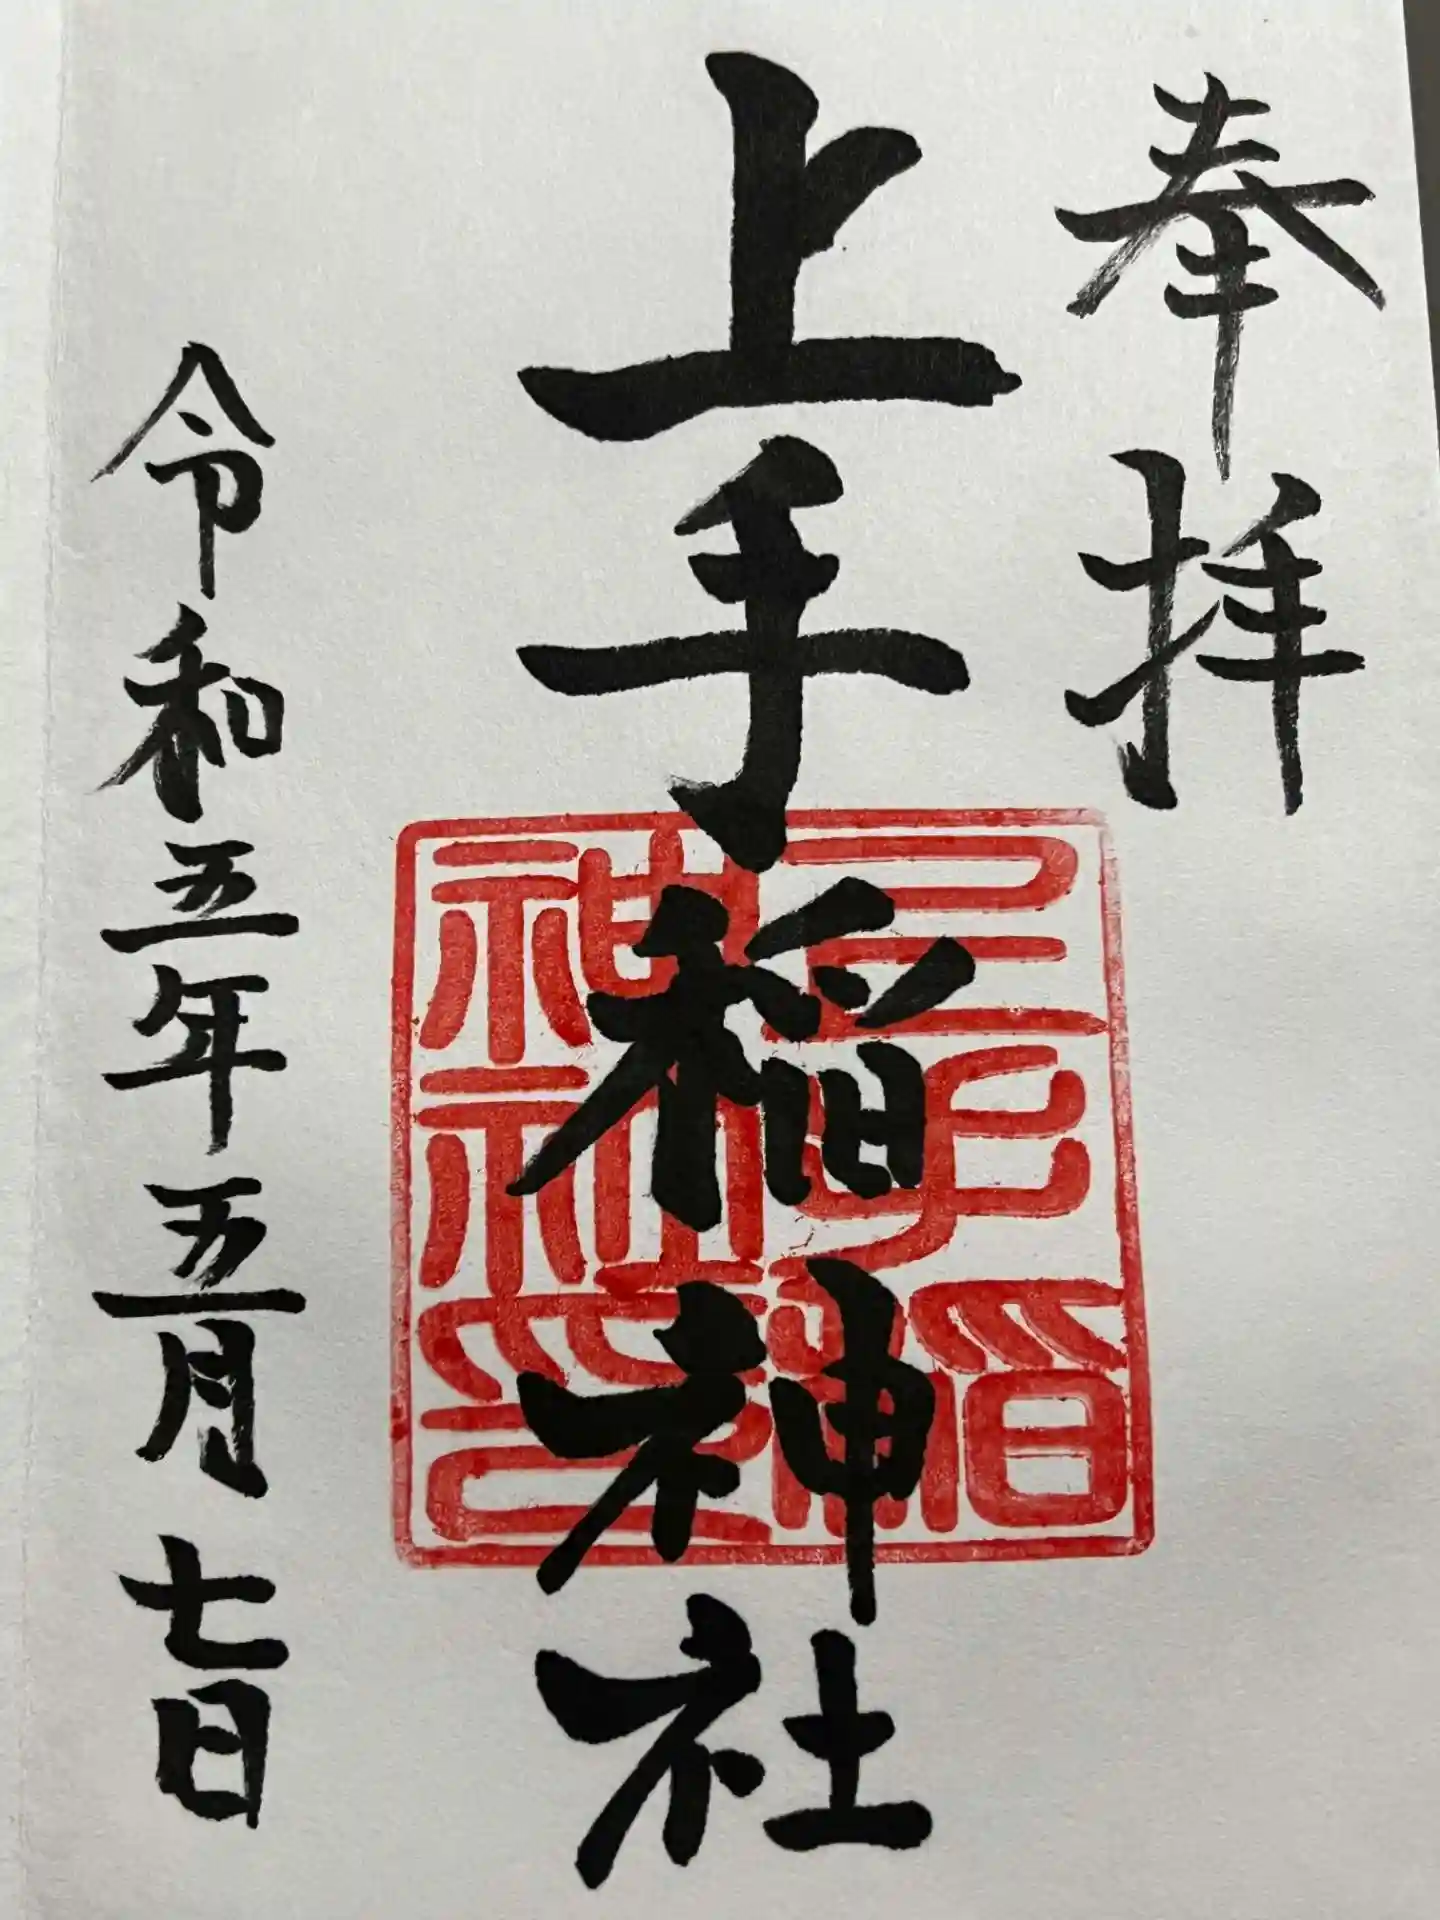 奉拝
上手稲神社
上手稲
神社印
令和五年五月七日